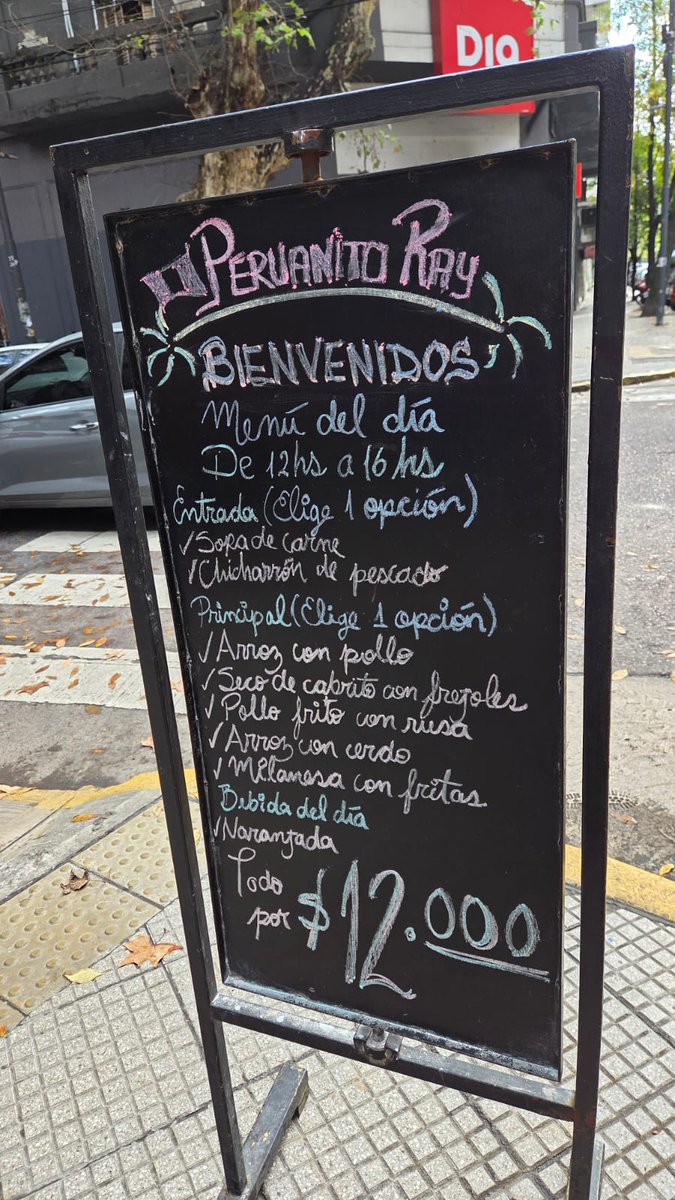 Dia
PERUANITO RAY
BIENVENIDOS
Menú del día
De 12hs a 16hs
Entrada (Elige 1 opción)
✓Sopa de carne
✓Chicharrón de pescado
Principal (Elige 1 opción)
✓Arroz con pollo
✓Seco de cabrito con frejoles
✓Pollo frito con rusa
✓Arroz con cerdo
✓Milanesa con fritas
Bebida del día
✓Naranjada
Todo
por $12.000